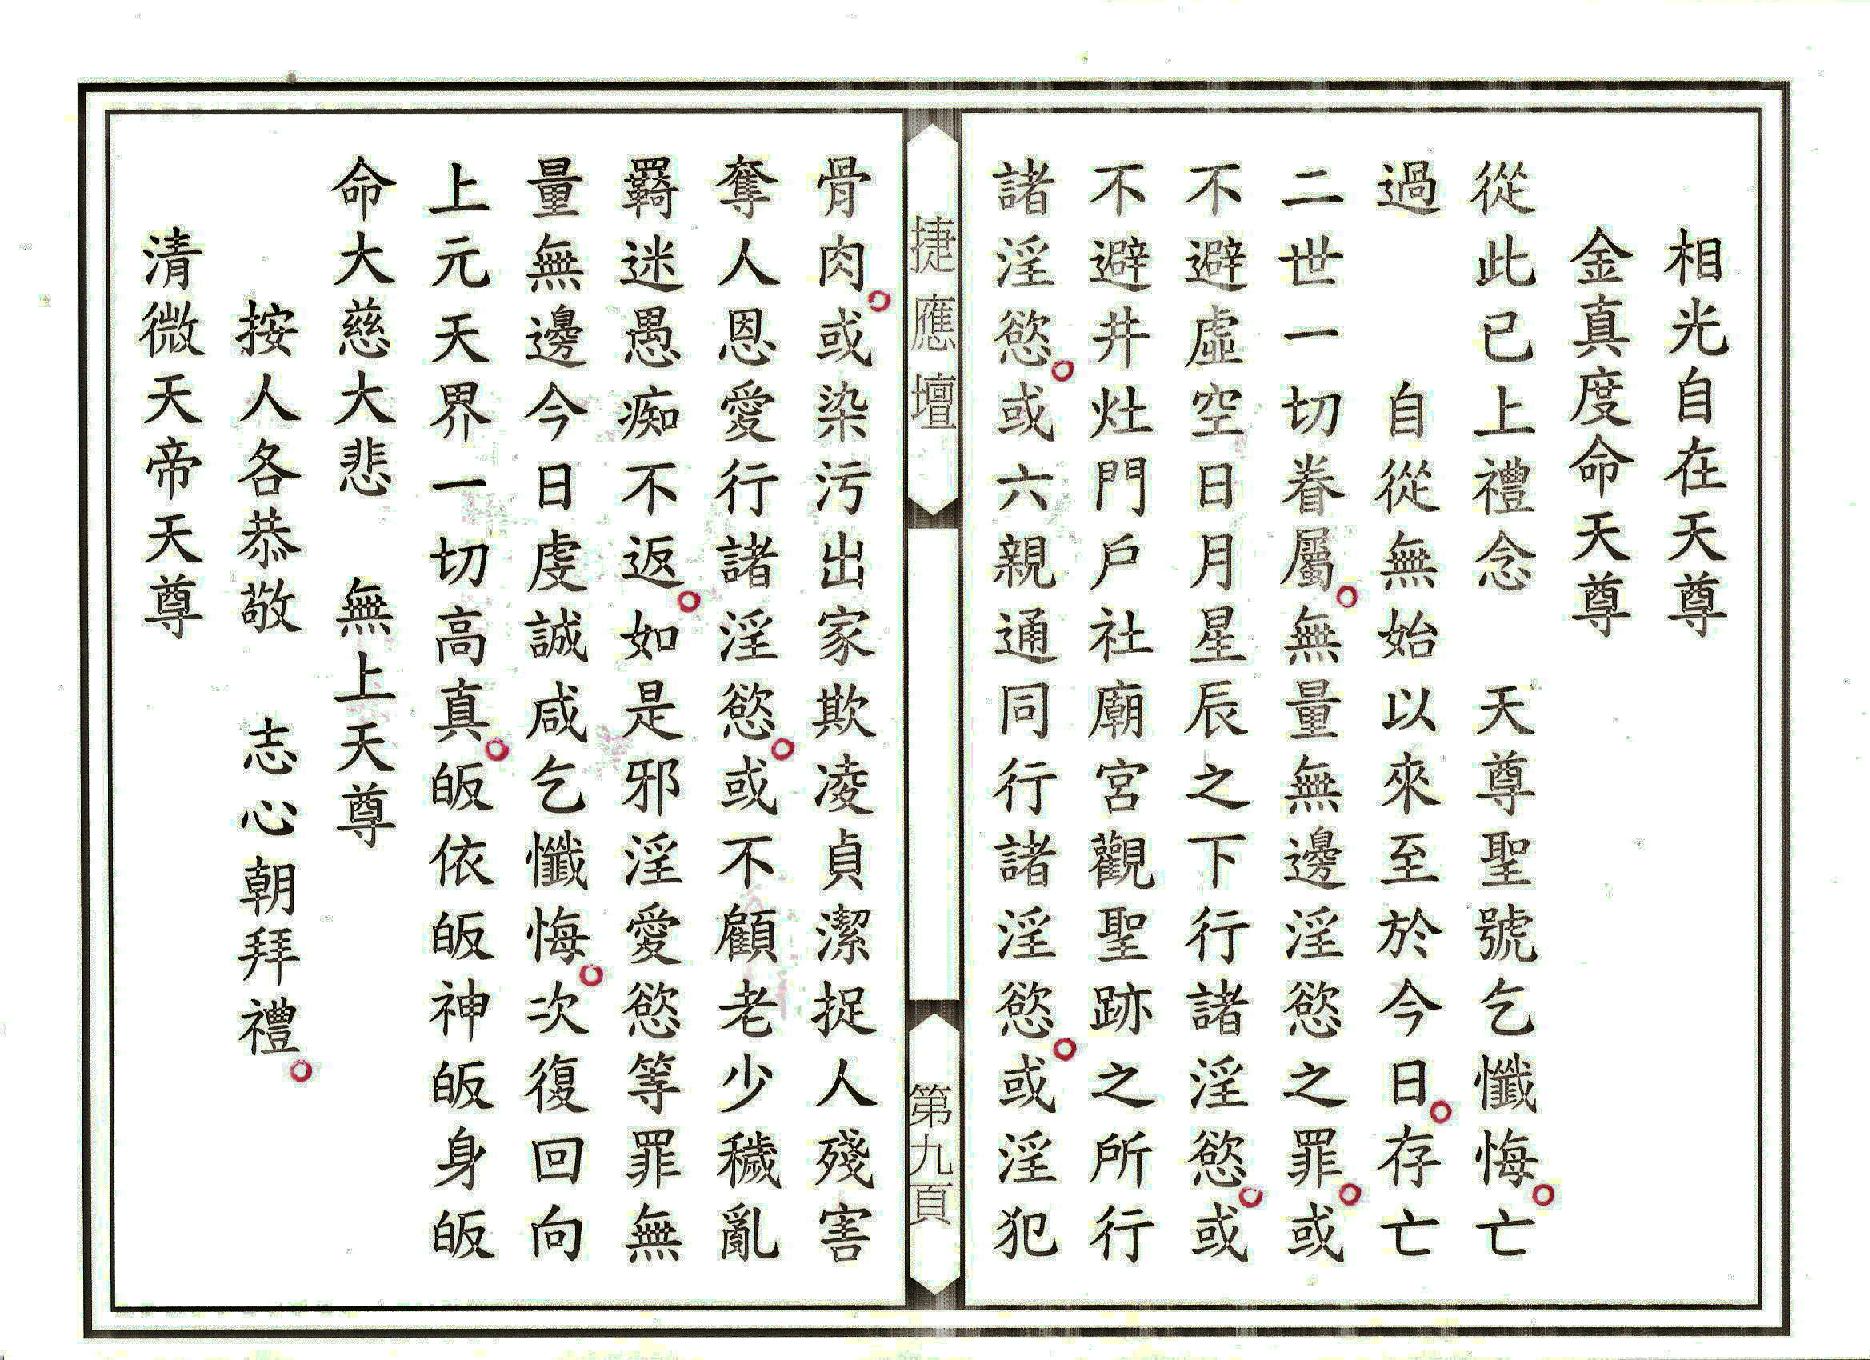 相光自在天尊
金真度命天尊
從此已上禮念　天尊聖號乞懺悔。亡
過　　自從無始以來至於今日。存亡
二世一切眷屬。無量無邊淫慾之罪。或
不避虛空日月星辰之下行諸淫慾。或
不避井灶門戶社廟宮觀聖跡之所行
諸淫慾。或六親通同行諸淫慾。或淫犯
捷應壇
第九頁
骨肉。或染污出家欺凌貞潔捉人殘害
奪人恩愛行諸淫慾。或不顧老少穢亂
羇迷愚痴不返。如是邪淫愛慾等罪無
量無邊今日虔誠咸乞懺悔。次復回向
上元天界一切高真。皈依皈神皈身皈
命大慈大悲　無上天尊
按人各恭敬　志心朝拜禮。
清微天帝天尊